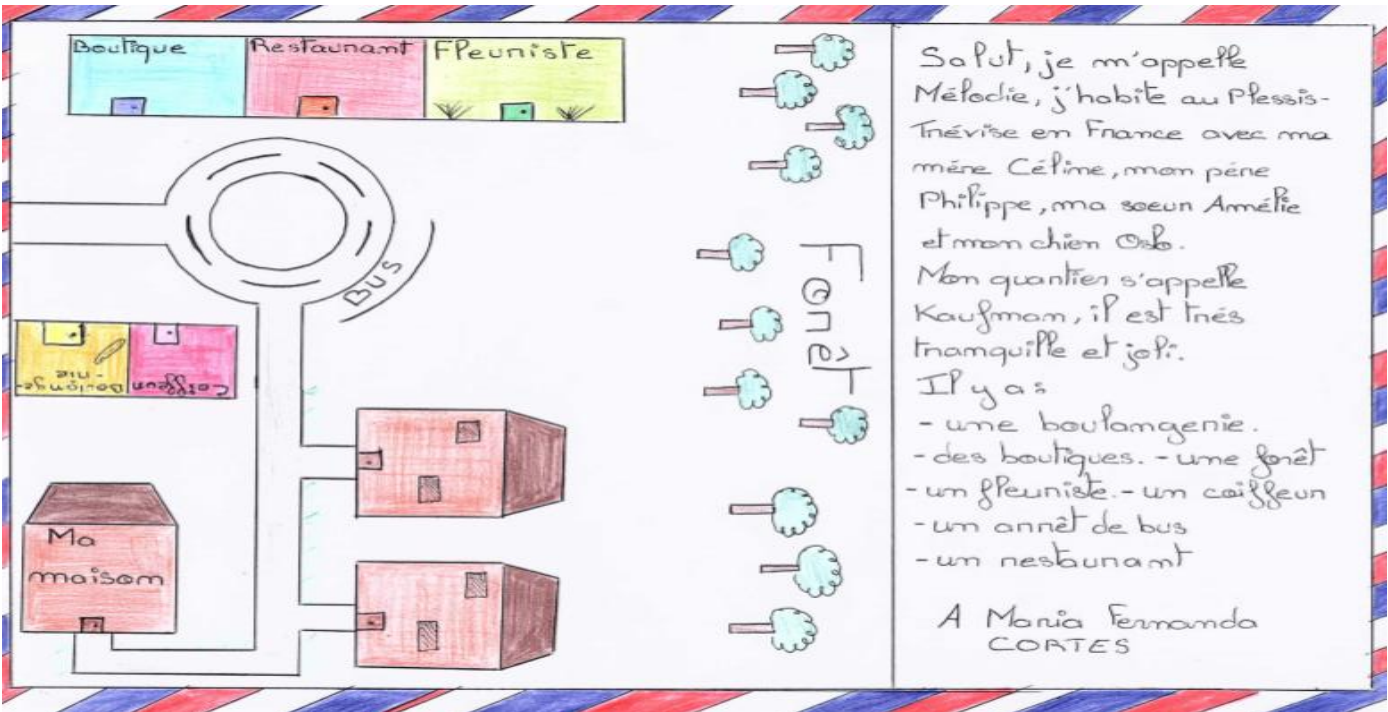 Boutique
Restaurant
Fleuriste
BUS
Forêt
Boulange-
-rie
Coiffeur
Ma
maison
Salut, je m'appelle
Mélodie, j'habite au Plessis-
Trévise en France avec ma
mère Céline, mon père
Philippe, ma soeur
et mon chien Oslo.
Mon quartier s'appelle
Kaufman, il est très
tranquille et joli.
Il y a :
- une boulangerie.
- des boutiques. - une forêt
- un fleuriste. - un coiffeur
- un arrêt de bus
- un restaurant
A Maria Fernanda
CORTES